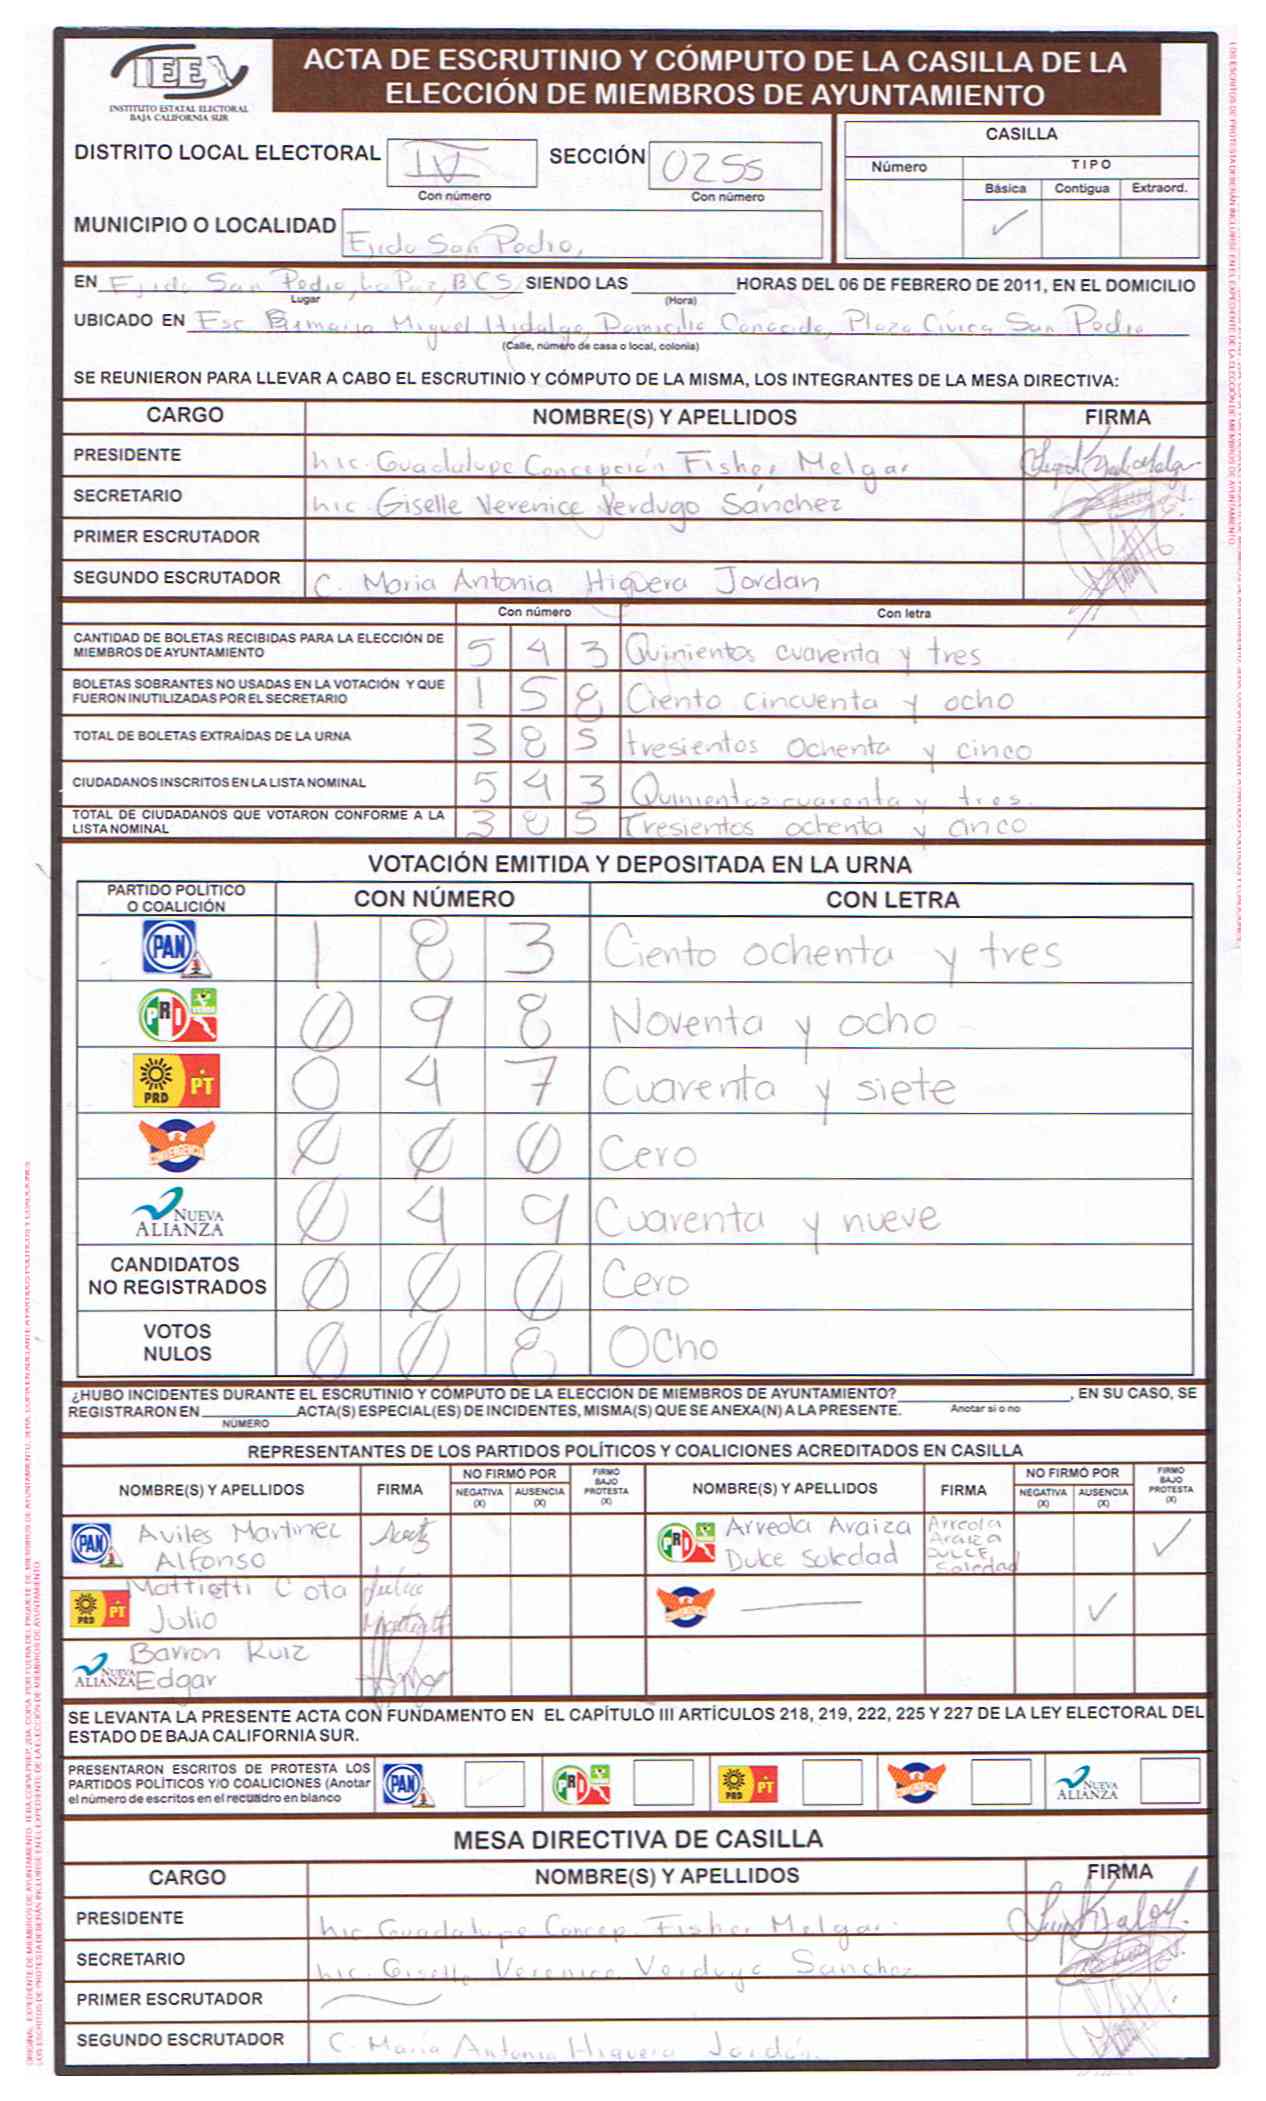 IEEBCS
INSTITUTO ESTATAL ELECTORAL
BAJA CALIFORNIA SUR
ACTA DE ESCRUTINIO Y CÓMPUTO DE LA CASILLA DE LA
ELECCIÓN DE MIEMBROS DE AYUNTAMIENTO
DISTRITO LOCAL ELECTORAL IV SECCIÓN 0255
Con número Con número
CASILLA
Número TIPO
Básica Contigua Extraord.
✓
MUNICIPIO O LOCALIDAD Ejido San Pedro,
EN Ejido San Pedro, La Paz, BCS SIENDO LAS ________ HORAS DEL 06 DE FEBRERO DE 2011, EN EL DOMICILIO
Lugar (Hora)
UBICADO EN Esc Primaria Miguel Hidalgo, Domicilio Conocido, Plaza Cívica San Pedro
(Calle, número de casa o local, colonia)
SE REUNIERON PARA LLEVAR A CABO EL ESCRUTINIO Y CÓMPUTO DE LA MISMA, LOS INTEGRANTES DE LA MESA DIRECTIVA:
CARGO NOMBRE(S) Y APELLIDOS FIRMA
PRESIDENTE Lic. Guadalupe Concepción Fisher Melgar
SECRETARIO Lic. Giselle Verenice Verdugo Sánchez
PRIMER ESCRUTADOR
SEGUNDO ESCRUTADOR C. Maria Antonia Higuera Jordan
Con número Con letra
CANTIDAD DE BOLETAS RECIBIDAS PARA LA ELECCIÓN DE
MIEMBROS DE AYUNTAMIENTO 5 4 3 Quinientos cuarenta y tres
BOLETAS SOBRANTES NO USADAS EN LA VOTACIÓN Y QUE
FUERON INUTILIZADAS POR EL SECRETARIO 1 5 8 Ciento cincuenta y ocho
TOTAL DE BOLETAS EXTRAÍDAS DE LA URNA 3 8 5 tresientos ochenta y cinco
CIUDADANOS INSCRITOS EN LA LISTA NOMINAL 5 4 3 Quinientos cuarenta y tres.
TOTAL DE CIUDADANOS QUE VOTARON CONFORME A LA
LISTA NOMINAL 3 8 5 Tresientos ochenta y cinco
VOTACIÓN EMITIDA Y DEPOSITADA EN LA URNA
PARTIDO POLÍTICO
O COALICIÓN CON NÚMERO CON LETRA
PAN 1 8 3 Ciento ochenta y tres
PRI VERDE 0 9 8 Noventa y ocho
PRD PT 0 4 7 Cuarenta y siete
CONVERGENCIA 0 0 0 Cero
NUEVA ALIANZA 0 4 9 Cuarenta y nueve
CANDIDATOS
NO REGISTRADOS 0 0 0 Cero
VOTOS
NULOS 0 0 8 Ocho
¿HUBO INCIDENTES DURANTE EL ESCRUTINIO Y CÓMPUTO DE LA ELECCIÓN DE MIEMBROS DE AYUNTAMIENTO? ________, EN SU CASO, SE
REGISTRARON EN ________ ACTA(S) ESPECIAL(ES) DE INCIDENTES, MISMA(S) QUE SE ANEXA(N) A LA PRESENTE. Anotar si o no
NÚMERO
REPRESENTANTES DE LOS PARTIDOS POLÍTICOS Y COALICIONES ACREDITADOS EN CASILLA
NOMBRE(S) Y APELLIDOS FIRMA NO FIRMÓ POR FIRMÓ BAJO PROTESTA (X) NOMBRE(S) Y APELLIDOS FIRMA NO FIRMÓ POR FIRMÓ BAJO PROTESTA (X)
NEGATIVA (X) AUSENCIA (X) NEGATIVA (X) AUSENCIA (X)
PAN Aviles Martinez PRI Arreola Araiza Arreola Araiza ✓
Alfonso Dulce Soledad DULCE Soledad
PRD PT Mattietti Cota Julio CONVERGENCIA ——— ✓
Julio
NUEVA ALIANZA Barron Ruiz
Edgar
SE LEVANTA LA PRESENTE ACTA CON FUNDAMENTO EN EL CAPÍTULO III ARTÍCULOS 218, 219, 222, 225 Y 227 DE LA LEY ELECTORAL DEL
ESTADO DE BAJA CALIFORNIA SUR.
PRESENTARON ESCRITOS DE PROTESTA LOS
PARTIDOS POLÍTICOS Y/O COALICIONES (Anotar
el número de escritos en el recuadro en blanco
PAN PRI PRD PT CONVERGENCIA NUEVA ALIANZA
MESA DIRECTIVA DE CASILLA
CARGO NOMBRE(S) Y APELLIDOS FIRMA
PRESIDENTE Lic Guadalupe Concep. Fisher Melgar
SECRETARIO Lic. Giselle Verenice Verdugo Sanchez
PRIMER ESCRUTADOR
SEGUNDO ESCRUTADOR C. María Antonia Higuera Jordán